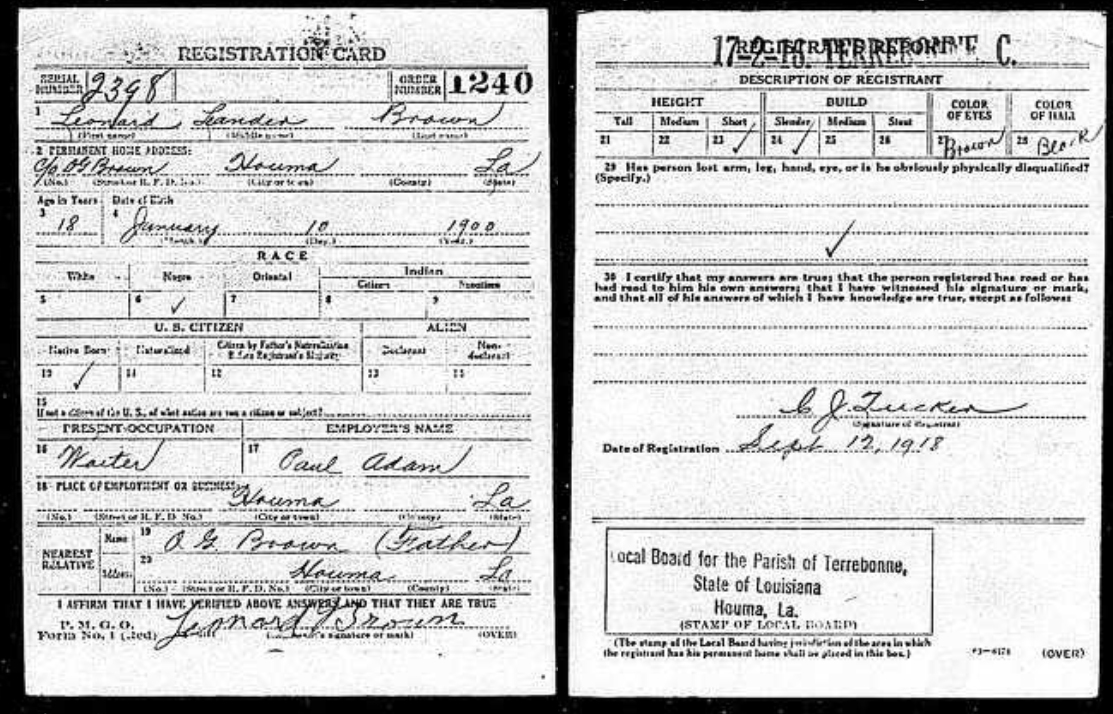 REGISTRATION CARD
SERIAL NUMBER 2398 ORDER NUMBER 1240
1 Leonard Leander Brown
(First name) (Middle name) (Last name)
2 PERMANENT HOME ADDRESS:
c/o O G Brown Houma La
(No.) (Street or R. F. D. No.) (City or town) (County) (State)
Age in Years Date of Birth
3 18 4 January 10 1900
(Month.) (Day.) (Year.)
RACE
White Negro Oriental Indian
Citizen Noncitizen
5 6 ✓ 7 8 9
U. S. CITIZEN ALIEN
Native Born Naturalized Citizen by Father's Naturalization Before Registrant's Majority Declarant Non-declarant
10 ✓ 11 12 13 14
15
If not a citizen of the U. S., of what nation are you a citizen or subject?
PRESENT OCCUPATION EMPLOYER'S NAME
16 Waiter 17 Paul Adam
18 PLACE OF EMPLOYMENT OR BUSINESS:
Houma La
(No.) (Street or R. F. D. No.) (City or town) (County) (State)
NEAREST RELATIVE Name 19 O. G. Brown (Father)
Address 20 Houma La
(No.) (Street or R. F. D. No.) (City or town) (County) (State)
I AFFIRM THAT I HAVE VERIFIED ABOVE ANSWERS AND THAT THEY ARE TRUE
P. M. G. O.
Form No. 1 (Red) Leonard Brown
signature or mark) (OVER)
REGISTRAR'S REPORT
17-2-18. TERREBONNE C.
DESCRIPTION OF REGISTRANT
HEIGHT BUILD COLOR OF EYES COLOR OF HAIR
Tall Medium Short Slender Medium Stout
21 22 23 ✓ 24 ✓ 25 26 27 Brown 28 Black
29 Has person lost arm, leg, hand, eye, or is he obviously physically disqualified?
(Specify.)
✓
30 I certify that my answers are true; that the person registered has read or has
had read to him his own answers; that I have witnessed his signature or mark,
and that all of his answers of which I have knowledge are true, except as follows:
C J. Tucker
(Signature of Registrar)
Date of Registration Sept 12, 1918
Local Board for the Parish of Terrebonne,
State of Louisiana
Houma, La.
(STAMP OF LOCAL BOARD)
(The stamp of the Local Board having jurisdiction of the area in which
the registrant has his permanent home shall be placed in this box.)
(OVER)